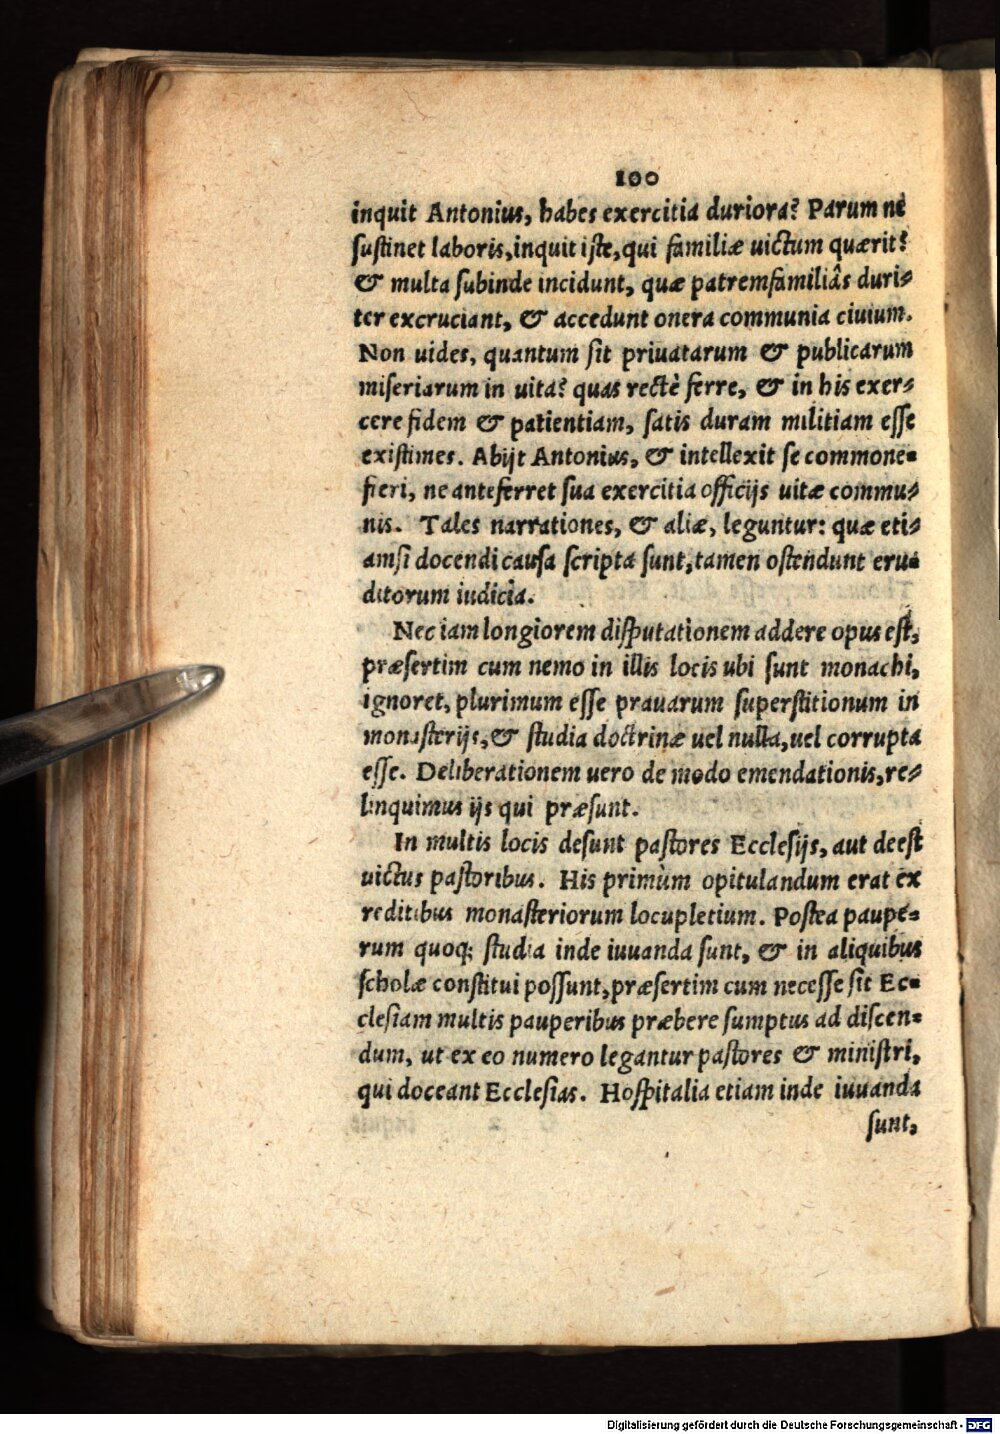 100
inquit Antonius, habes exercitia duriora? Parum nè
sustinet laboris, inquit iste, qui familiæ uictum quærit?
& multa subinde incidunt, quæ patremfamiliâs duri-
ter excruciant, & accedunt onera communia ciuium.
Non uides, quantum sit priuatarum & publicarum
miseriarum in uita? quas rectè ferre, & in his exer-
cere fidem & patientiam, satis duram militiam esse
existimes. Abijt Antonius, & intellexit se commone-
fieri, ne anteferret sua exercitia officijs uitæ commu-
nis. Tales narrationes, & aliæ, leguntur: quæ eti-
amsi docendi causa scripta sunt, tamen ostendunt eru-
ditorum iudicia.
Nec iam longiorem disputationem addere opus est,
præsertim cum nemo in illis locis ubi sunt monachi,
ignoret, plurimum esse prauarum superstitionum in
monasterijs, & studia doctrinæ uel nulla, uel corrupta
esse. Deliberationem uero de modo emendationis, re-
linquimus ijs qui præsunt.
In multis locis desunt pastores Ecclesijs, aut deest
uictus pastoribus. His primùm opitulandum erat ex
reditibus monasteriorum locupletium. Postea paupe-
rum quoq; studia inde iuuanda sunt, & in aliquibus
scholæ constitui possunt, præsertim cum necesse sit Ec-
clesiam multis pauperibus præbere sumptus ad discen-
dum, ut ex eo numero legantur pastores & ministri,
qui doceant Ecclesias. Hospitalia etiam inde iuuanda
sunt,
Digitalisierung gefördert durch die Deutsche Forschungsgemeinschaft - DFG